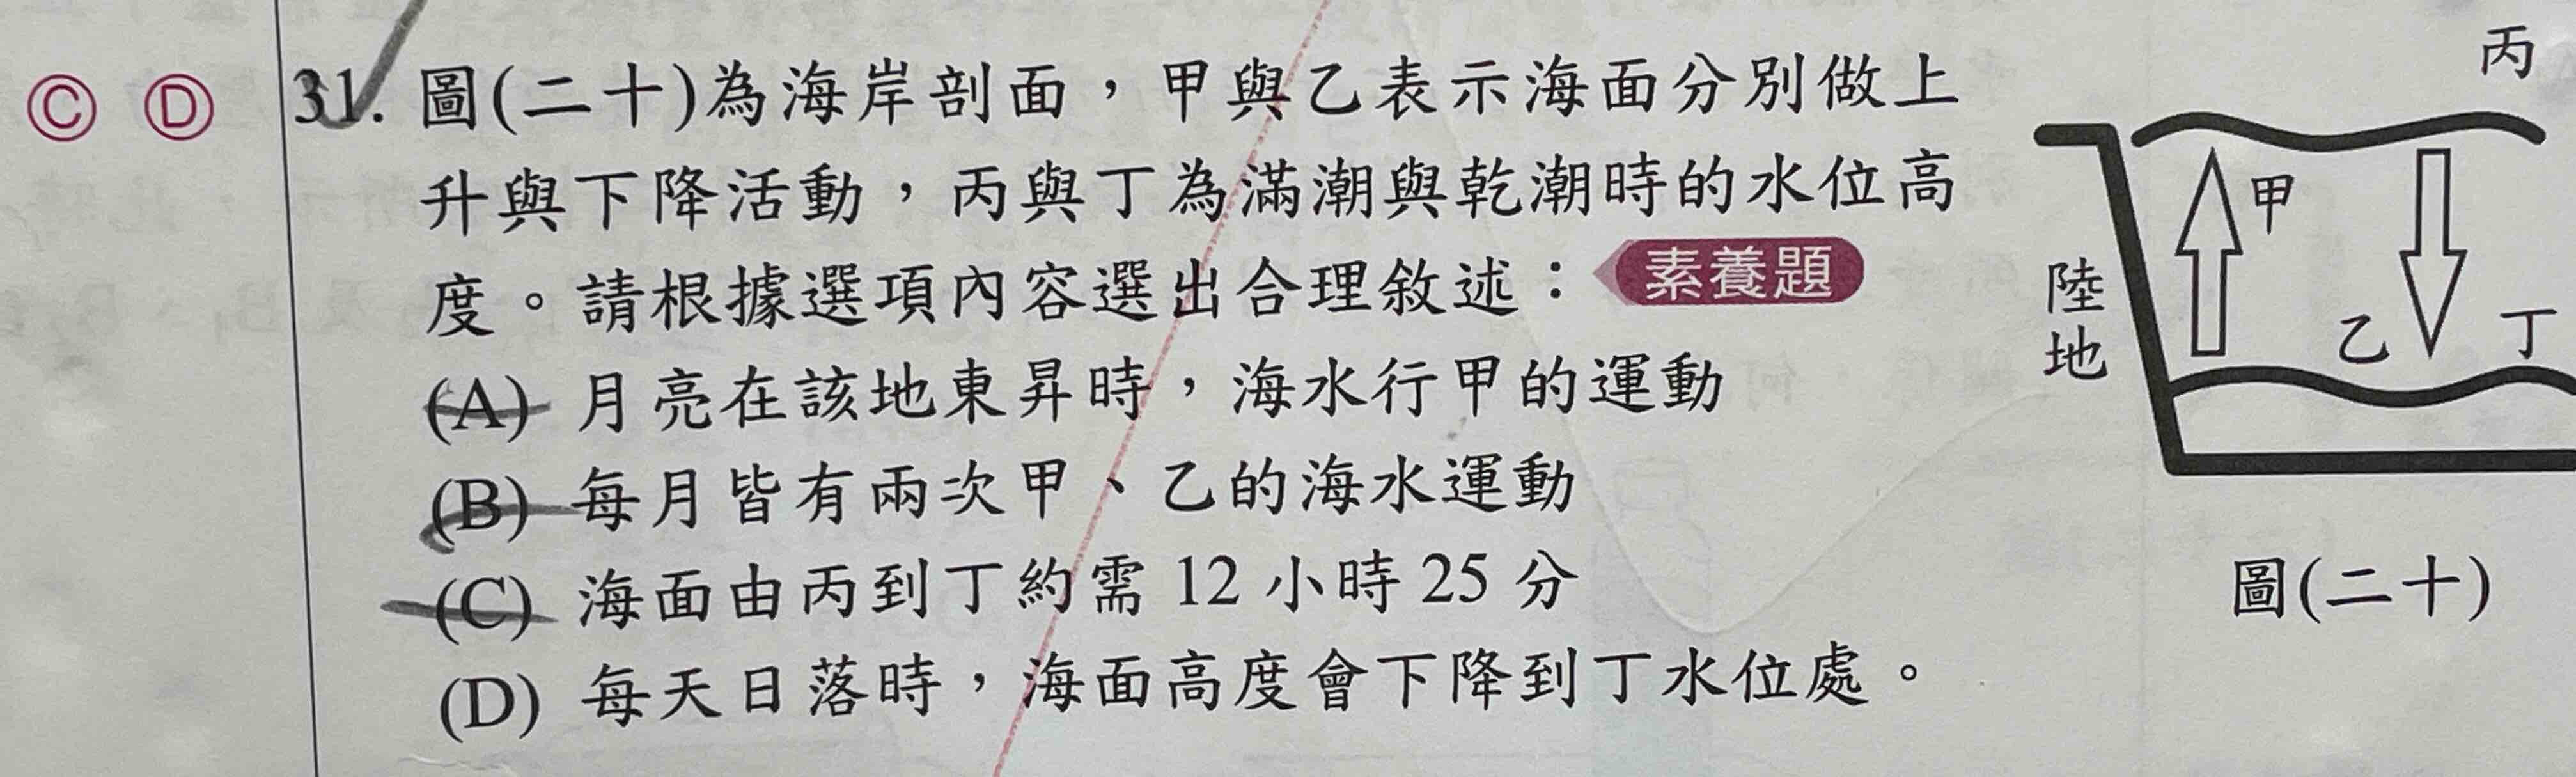 Ⓒ Ⓓ 31. 圖(二十)為海岸剖面，甲與乙表示海面分別做上
升與下降活動，丙與丁為滿潮與乾潮時的水位高
度。請根據選項內容選出合理敘述：素養題
(A) 月亮在該地東昇時，海水行甲的運動
(B) 每月皆有兩次甲、乙的海水運動
(C) 海面由丙到丁約需 12 小時 25 分
(D) 每天日落時，海面高度會下降到丁水位處。
丙
甲
陸地
乙
丁
圖(二十)